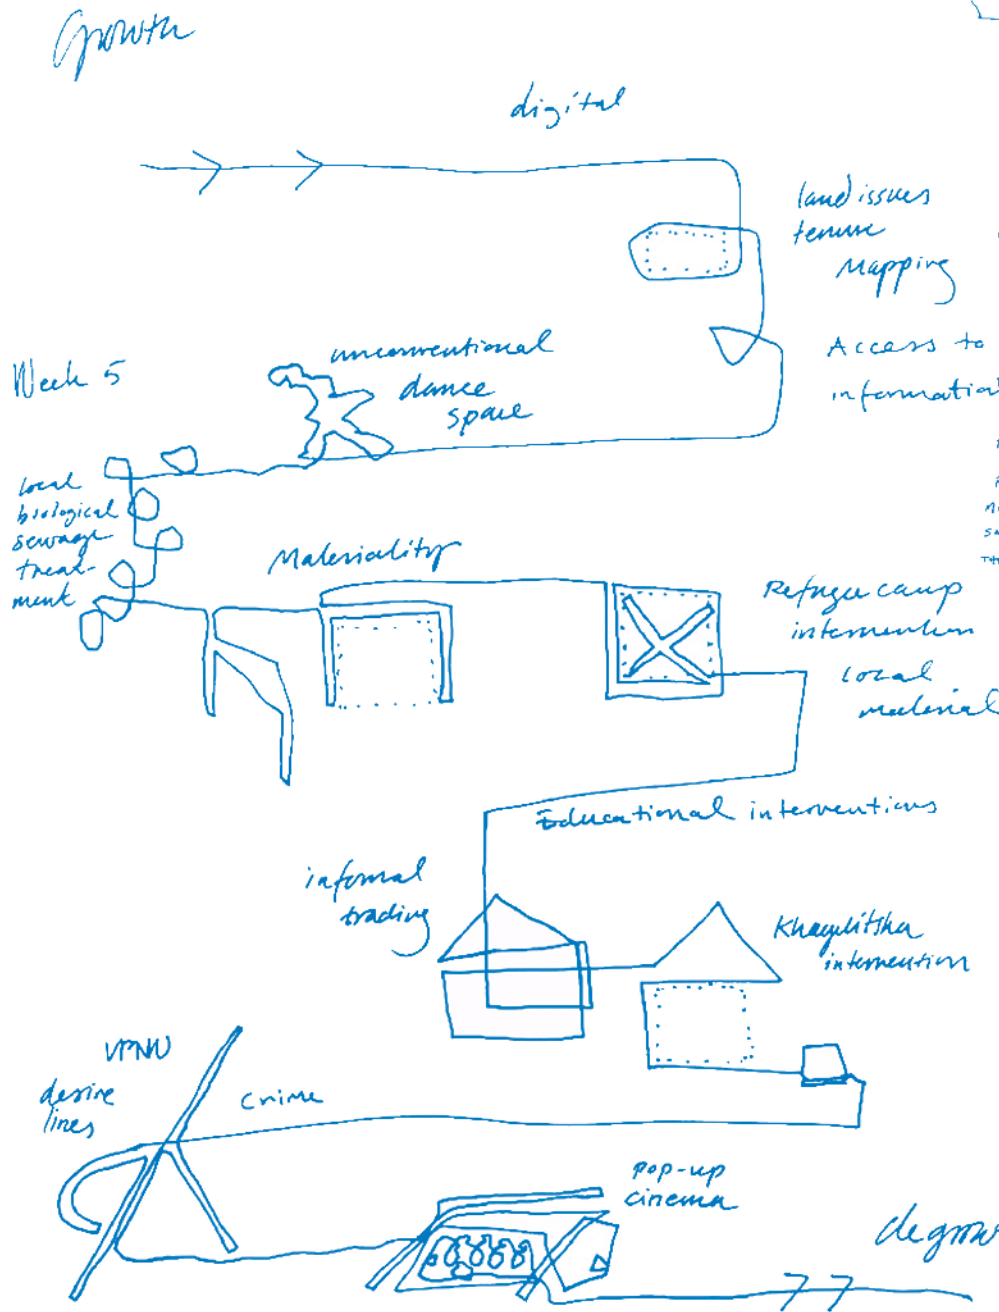 Growth
digital
land issues
tenure
Mapping
Access to
information
unconventional
dance
space
Week 5
local
biological
sewage
treat-
ment
Materiality
Refugee camp
intervention
Local
material
Educational interventions
informal
trading
Khayelitsha
intervention
VPUU
desire
lines
crime
pop-up
cinema
degrow